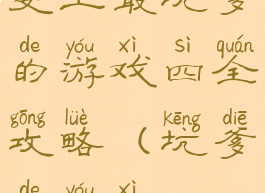 de yóu xì sì quán
的游戏四全
gōng lüè kēng diē
攻略(坑爹
de yóu xì